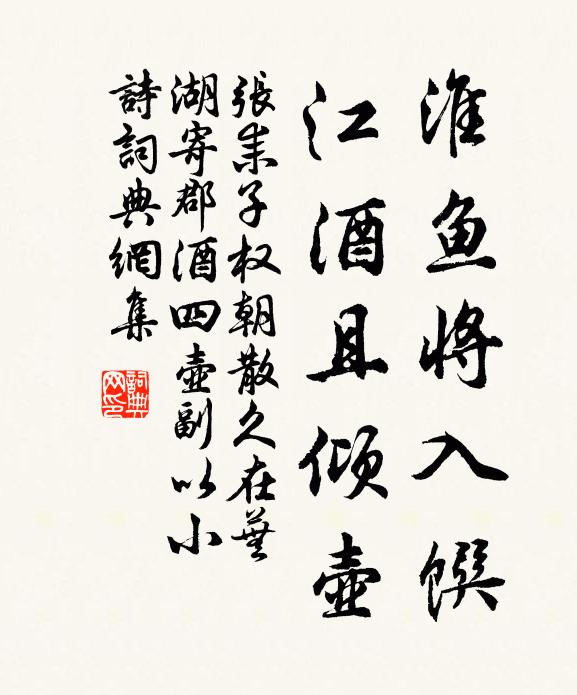 淮鱼将入馔
江酒且倾壶
張耒子权朝散久在蕪
湖寄郡酒四壺副以小
詩詞典網集
詞典
网印